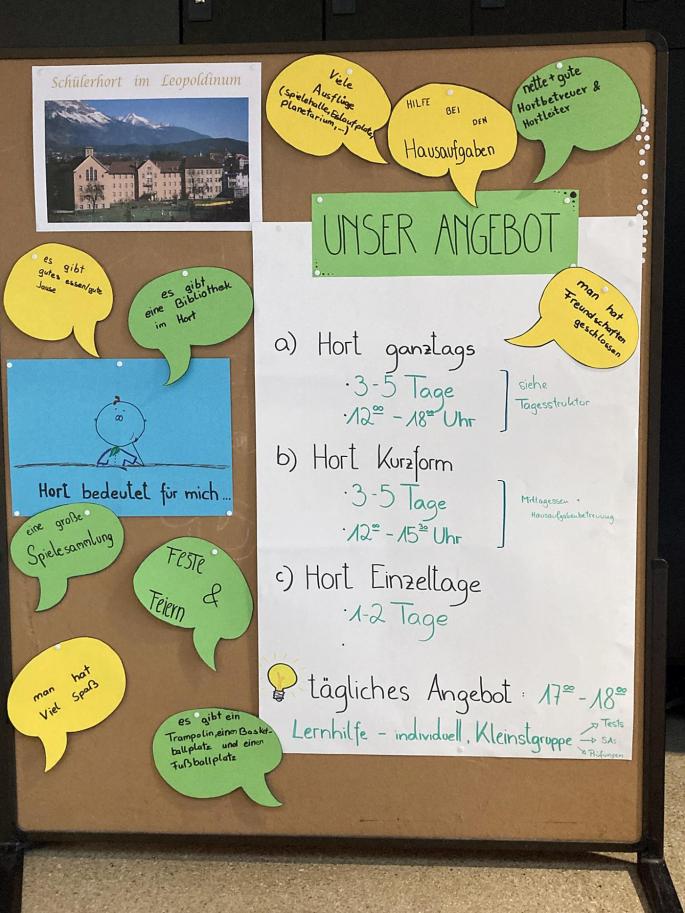 Schülerhort im Leopoldinum
Viele
Ausflüge
(Spielehalle, Eislaufplatz,
Planetarium,...)
HILFE
BEI
DEN
Hausaufgaben
nette + gute
Hortbetreuer &
Hortleiter
UNSER ANGEBOT
es gibt
gutes essen/gute
Jause
es gibt
eine Bibliothek
im Hort
man hat
Freundschaften
geschlossen
a) Hort ganztags
· 3-5 Tage
· 12⁰⁰ - 18⁰⁰ Uhr
siehe
Tagesstruktur
b) Hort Kurzform
· 3-5 Tage
· 12⁰⁰ - 15³⁰ Uhr
Mittagessen +
Hausaufgabenbetreuung
c) Hort Einzeltage
· 1-2 Tage
·
tägliches Angebot : 17⁰⁰ - 18⁰⁰
Lernhilfe - individuell, Kleinstgruppe
→ Tests
→ SA:
→ Prüfungen
Hort bedeutet für mich...
eine große
Spielesammlung
Feste
&
Feiern
man hat
Viel Spaß
es gibt ein
Trampolin, einen Basket-
ballplatz und einen
Fußballplatz